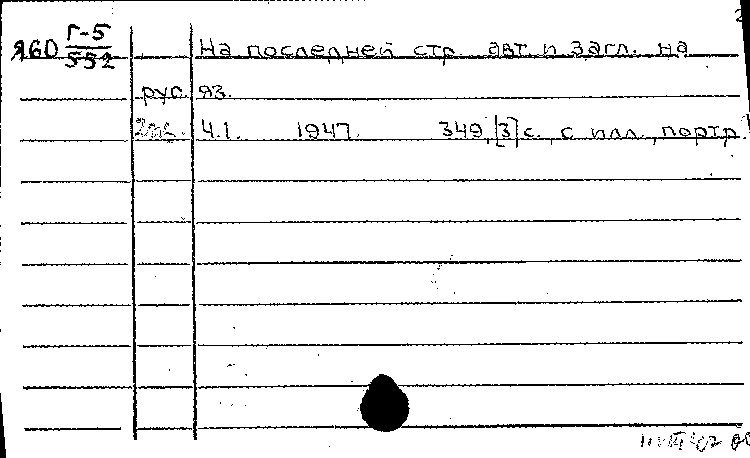 Я60 Г-5/552 На последней стр. авт и загл. на
рус яз.
2эк. Ч.1. 1947. 349,[3]с. с илл., портр.